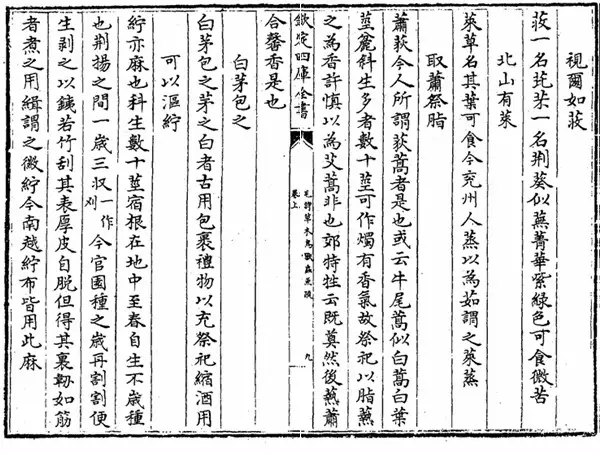 視爾如荍
荍一名芘芣一名荆葵似蕪菁華紫綠色可食微苦
北山有萊
萊草名其葉可食今兖州人蒸以為茹謂之萊蒸
取蕭祭脂
蕭荻今人所謂荻蒿者是也或云牛尾蒿似白蒿白葉
莖麄科生多者數十莖可作燭有香氣故祭祀以脂爇
之為香許慎以為艾蒿非也郊特牲云既奠然後爇蕭
欽定四庫全書
毛詩草木鳥獸蟲魚疏
卷上
九
合馨香是也
白茅包之
白茅包之茅之白者古用包裹禮物以充祭祀縮酒用
可以漚紵
紵亦麻也科生數十莖宿根在地中至春自生不歲種
也荆揚之間一歲三收一作刈今官園種之歲再割割便
生剥之以鐵若竹刮其表厚皮自脱但得其裏韌如筋
者煮之用緝謂之徽紵今南越紵布皆用此麻